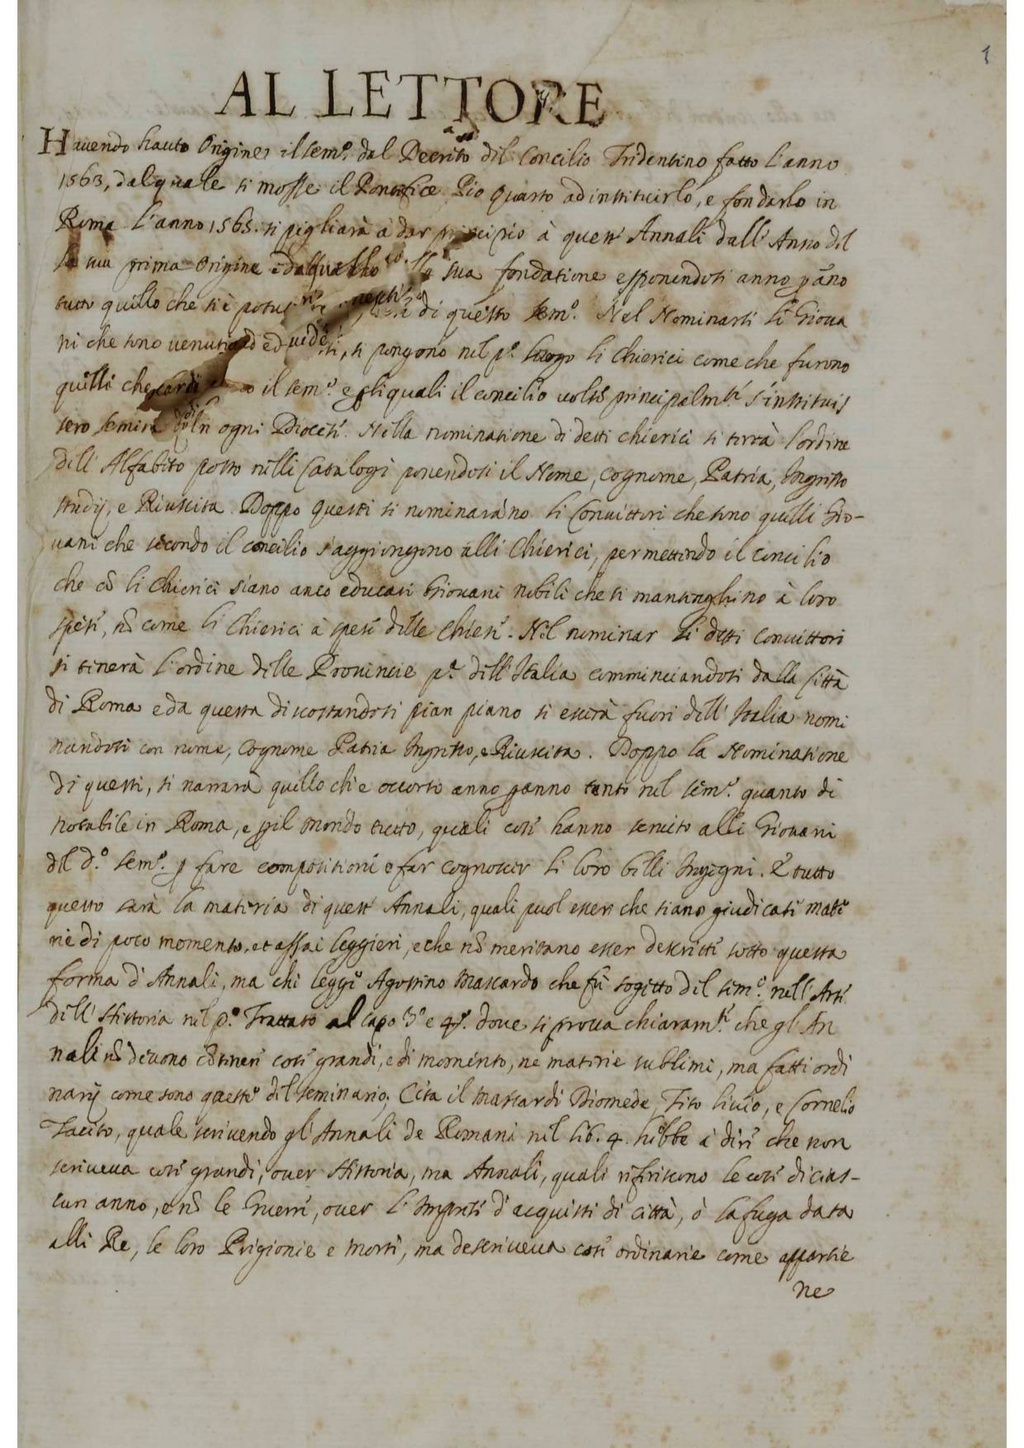 1
AL LETTORE
Havendo hauto Origine il Sem.º dal Decreto del Concilio Tridentino fatto l'anno
1563, dal quale si mosse il Pontefice Pio Quarto ad instituirlo, e fondarlo in
Roma l'anno 1565. si pigliarà à dar principio à questi Annali dall'Anno del
la sua prima Origine e sua fondatione esponendosi anno p anno
tutto quello che si è di questo Sem.º Nel Nominarsi li Giova
ni che sono venuti ad ed si pongono nel p.º luogo li Chierici come che furono
quelli che il Sem.º e p li quali il Concilio volse principalm.te s'instituis
sero in ogni Diocesi. Nella nominatione di detti Chierici si terrà l'ordine
dell'Alfabeto posto nelli Catalogi ponendosi il Nome, Cognome, Patria, Ingresso
studij, e Riuscita. Doppo questi si nominaranno li Convittori che sono quelli Gio-
vani che secondo il Concilio s'aggiongono alli Chierici, permettendo il Concilio
che cõ li Chierici siano anco educati Giovani nobili che si mantenghino à loro
spese, nõ come li Chierici à spese delle Chiese. Nel nominar li detti Convittori
si tenerà l'ordine delle Provincie p.ª dell'Italia cominciandosi dalla Città
di Roma e da questa discostandosi pian piano si escirà fuori dell'Italia nomi
nandosi con nome, Cognome Patria Ingresso, e Riuscita. Doppo la Nominatione
di questi, si narrarà quello ch'è occorso anno p anno tanto nel Sem.º quanto di
notabile in Roma, e p il Mondo tutto, quali cose hanno servito alli Giovani
del d.º Sem.º p fare compositioni e far cognoscer li loro belli Ingegni. E tutto
questo sarà la materia di questi Annali, quali puol essere che siano giudicati mate
rie di poco momento, et assai leggieri, e che nõ meritano esser descritti sotto questa
forma d'Annali, ma chi legge Agostino Mascardo che fù sogetto del Sem.º nell'Arte
dell'Historia nel p.º Trattato al capo 3º e 4º. dove si prova chiaram.te che gl'An
nali nõ devono cõtenere cose grandi, e di momento, ne materie sublimi, ma fatti ordi
narij come sono queste del Seminario. Cita il Mascardi Diomede, Tito Livio, e Cornelio
Tacito, quale scrivendo gl'Annali de Romani nel lib. 4. hebbe à dire che non
scriveva cose grandi, over Historia, ma Annali, quali riferiscono le cose di cias-
cun anno, e nõ le Guerre, over l'Imprese d'acquisti di Città, ò la fuga data
alli Re, le loro Prigionie e morti, ma descriveva cose ordinarie come appartie
ne